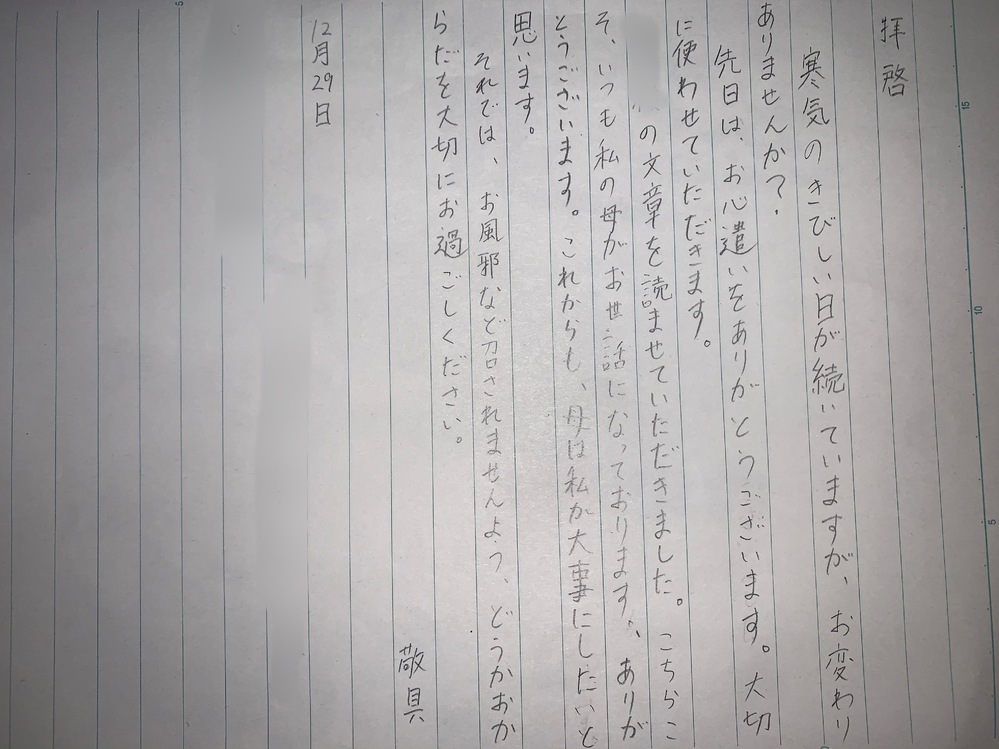 拝啓
寒気のきびしい日が続いていますが、お変わり
ありませんか?
先日は、お心遣いをありがとうございます。大切
に使わせていただきます。
の文章を読ませていただきました。こちらこ
そ、いつも私の母がお世話になっております。、ありが
とうございます。これからも、母は私が大事にしたいと
思います。
それでは、お風邪など召されませんよう、どうかおか
らだを大切にお過ごしください。
敬具
12月29日
15
10
5
5